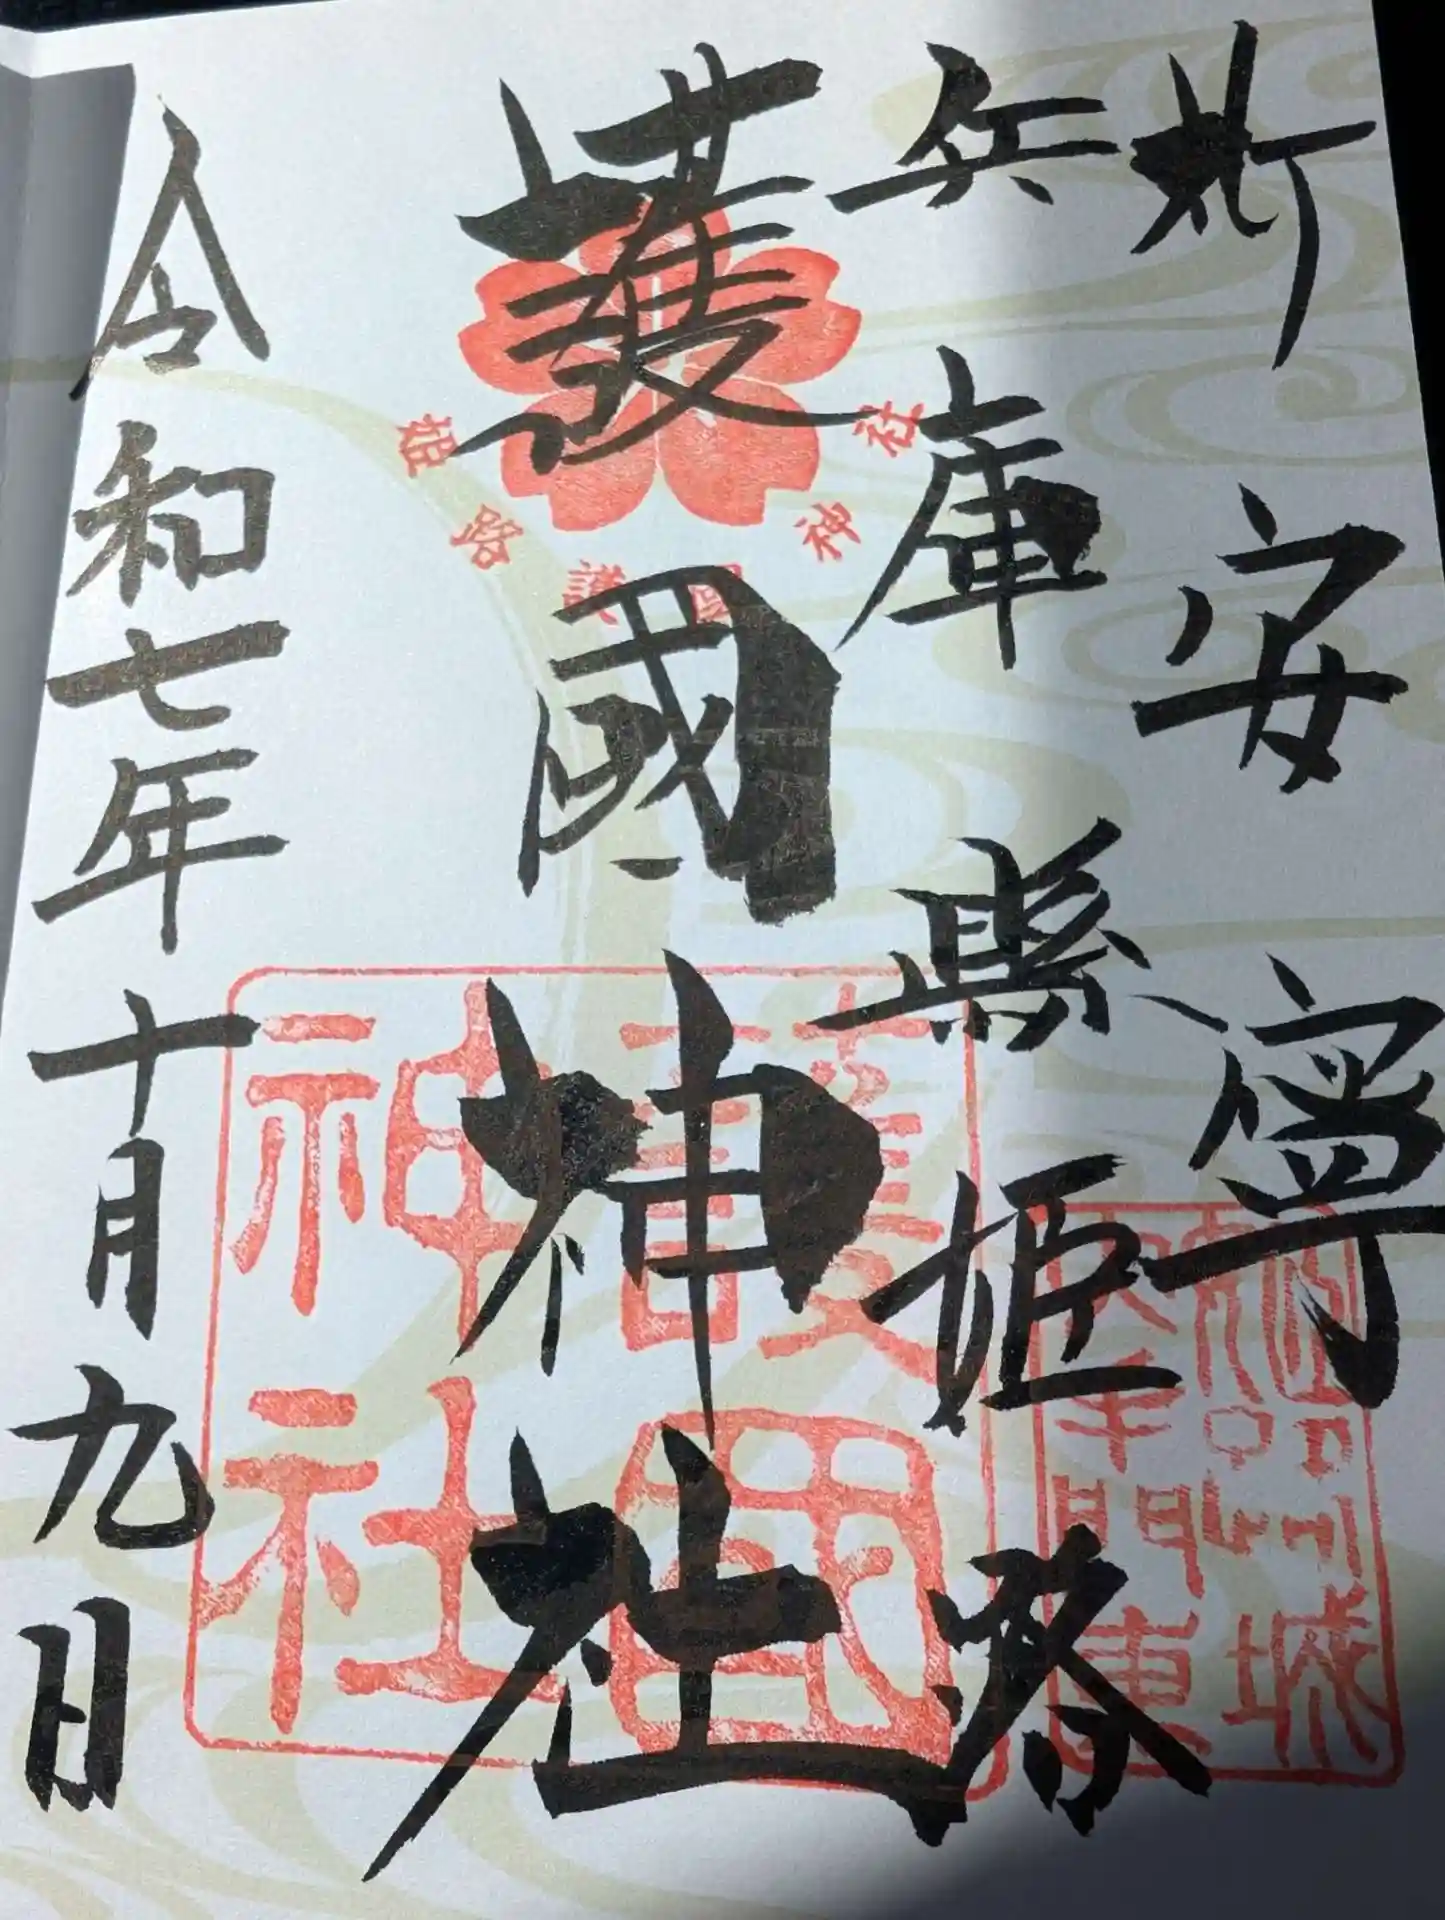 祈安寧
兵庫縣姫路
護國神社
令和七年十月九日
姫路護國神社
護國神社